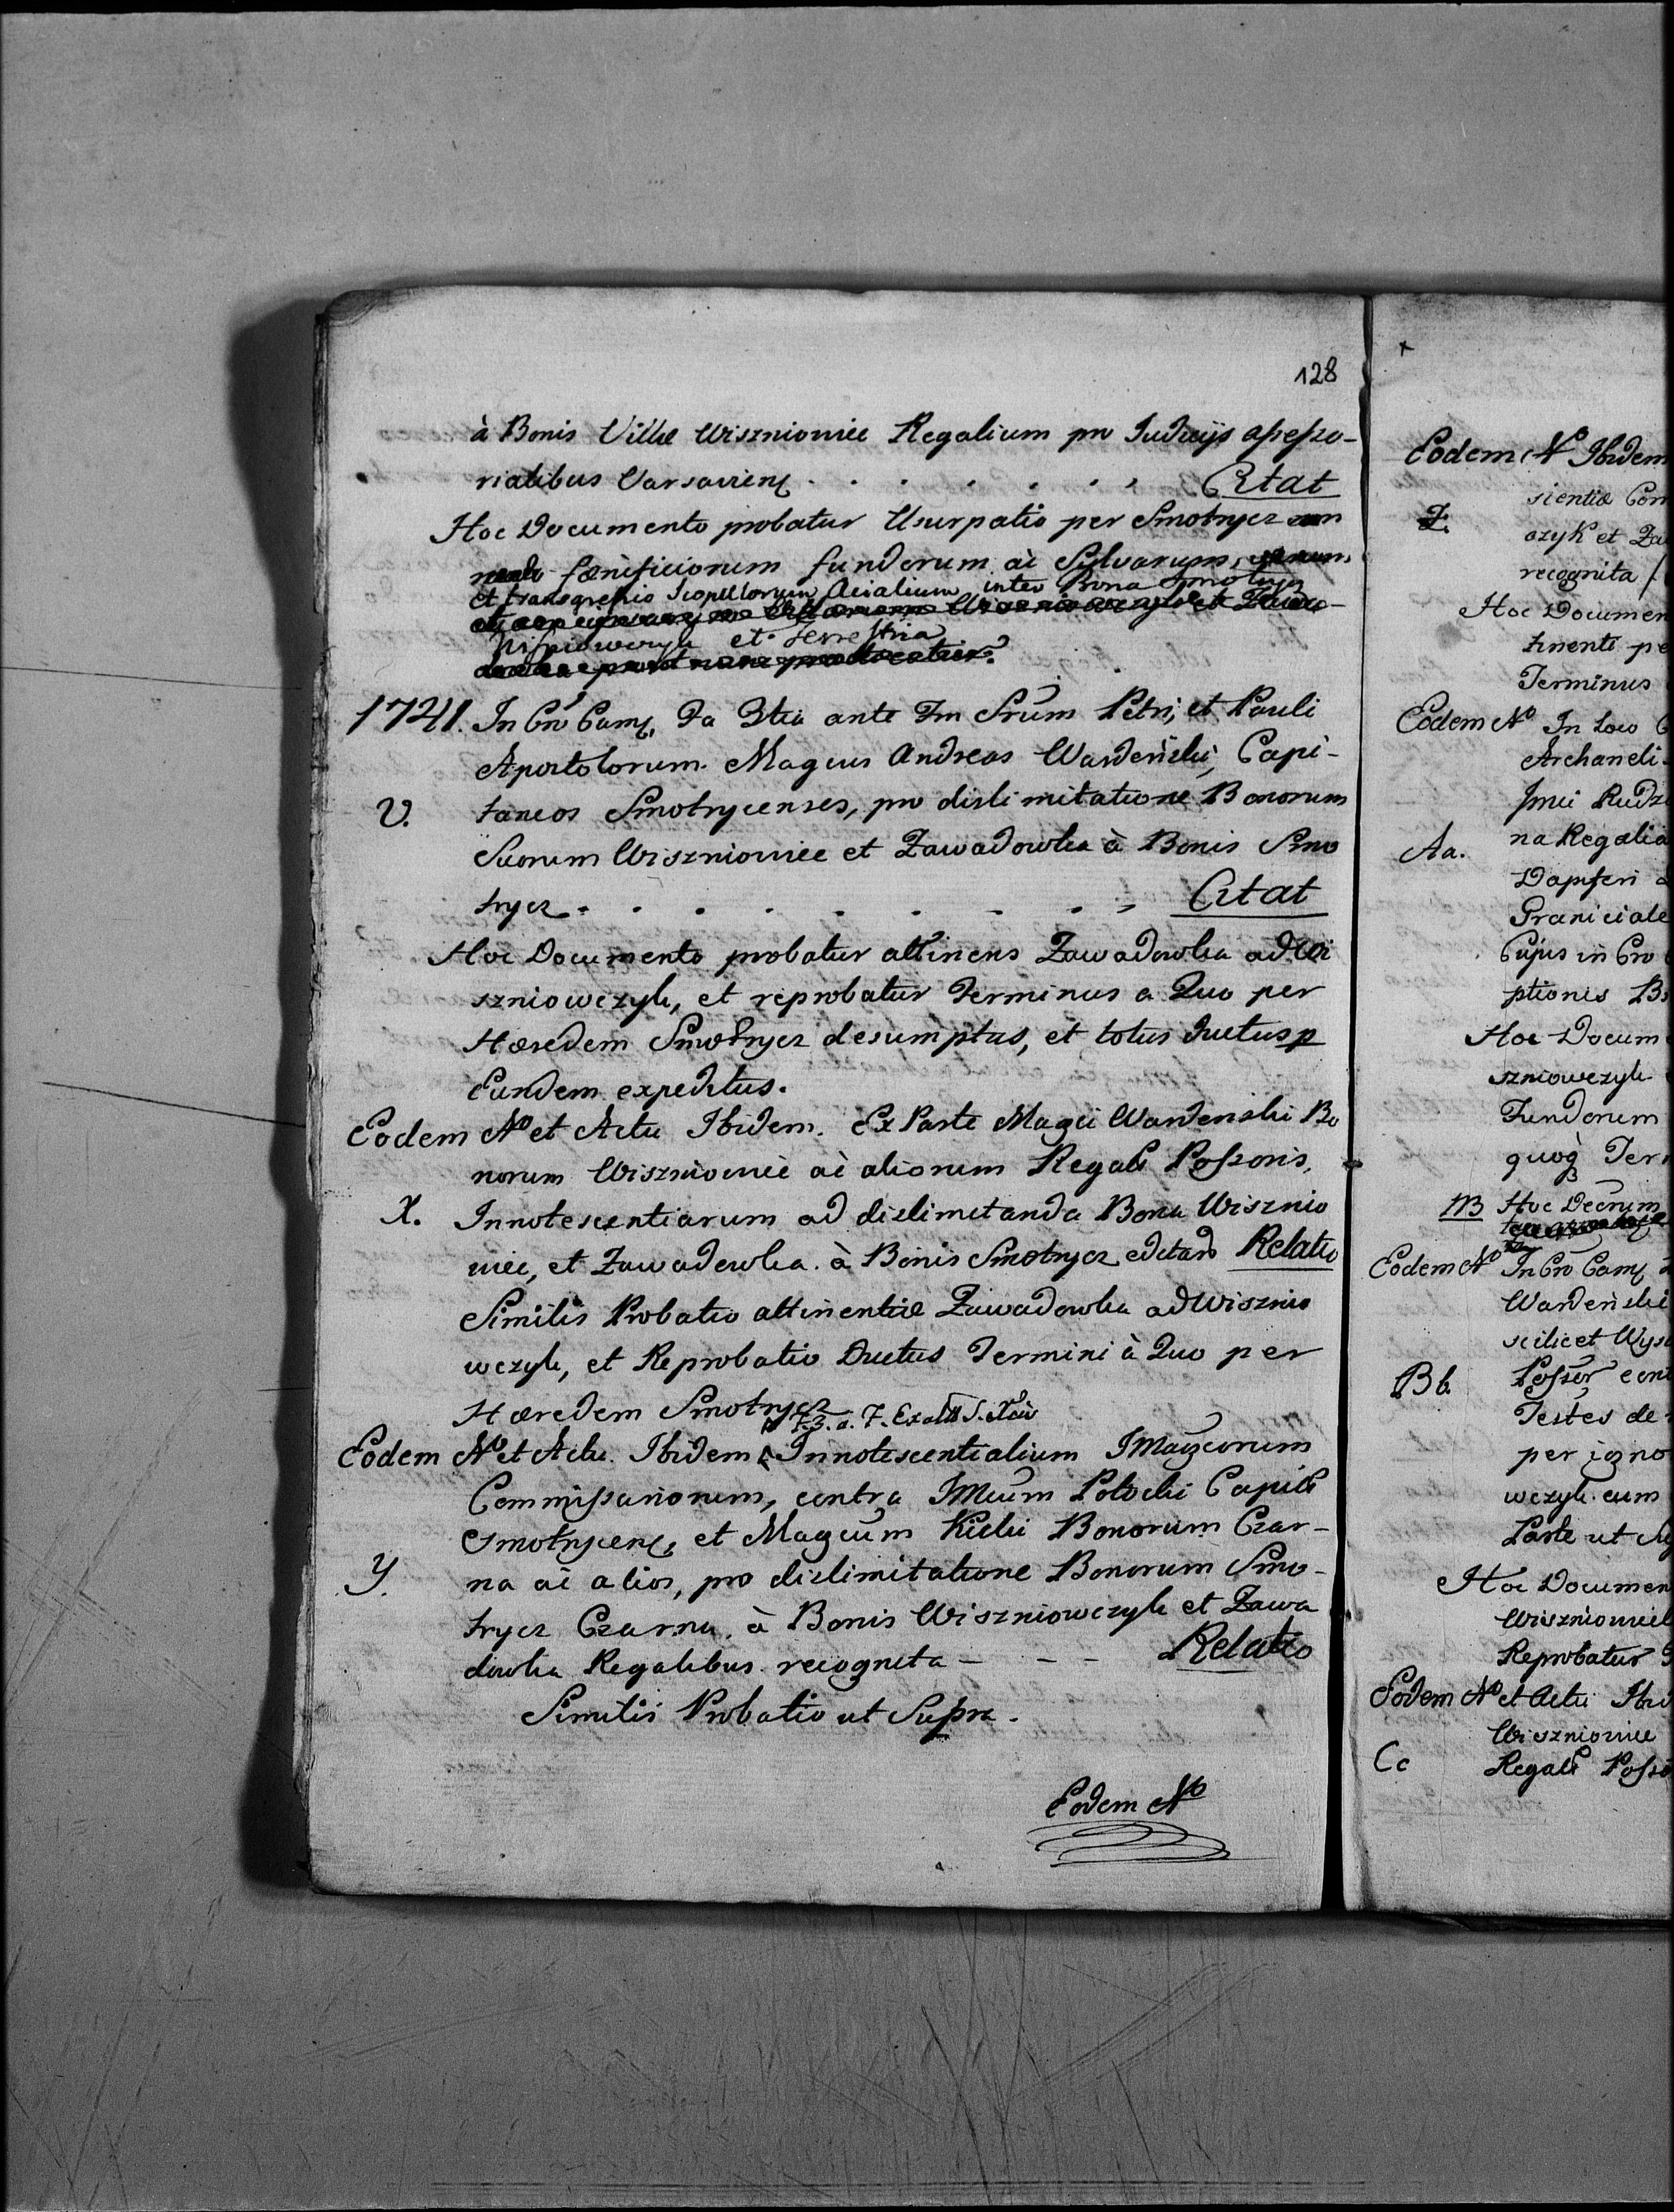 128
à Bonis Villæ Wiszniowiec Regalium pro Judicijs assesso-
rialibus Varsavien . . . . . . Citat
Hoc Documento probatur Usurpatio per Smotrycz
fænificiorum fundorum ac Sylvarum,
et transgressio Scopulorum Acialium inter Bona Smotrycz
Wisniowczyk et Terrestria
1741. In Cro Cam, Fa 3tia ante Fm Srum Petri, et Pauli
Apostolorum. Magcus Andreas Wardeński, Capi-
V. taneos Smotrycenses, pro dislimitatione Bonorum
Suorum Wiszniowiec et Zawadowka à Bonis Smo
trycz . . . . . . . . Citat
Hoc Documento probatur attinens Zawadowka ad Wi
szniowczyk, et reprobatur Terminus a Quo per
Hæredem Smotrycz desumptus, et totus Ductus p
Eundem expeditus.
Eodem Ao et Actu Ibidem. Ex Parte Magci Wardenski Bo
norum Wiszniowiec ac aliorum Regali Possoris,
X. Innotescentiarum ad dislimitanda Bona Wisznio
wiec, et Zawadowka à Bonis Smotrycz editar Relatio
Similis Probatio attinentiæ Zawadowka ad Wisznio
wczyk, et Reprobatio Ductus Termini à Quo per
Hæredem Smotrycz
F. 3. a. F. Exalt S.
Eodem Ao et Actu Ibidem Innotescentialium IMagcorum
Commissariorum, contra IMcum Potocki Capit
Smotrycen, et Magcum Kicki Bonorum Czar-
Y. na ac alios, pro dislimitatione Bonorum Smo-
trycz Czarna à Bonis Wiszniowczyk et Zawa
dowka Regalibus recognita - - - Relatio
Similis Probatio ut Supra.
Eodem Ao
Eodem Ao Ibidem
sientiæ Com
Z. czyk et Za
recognita
Hoc Documen
tinenti pe
Terminus
Eodem Ao In Loco
Archaneli
Rudz
Aa. na Regalia
Dapiferi
Graniciale
Cujus in Cro
ptionis B
Hoc Docum
szniowczyk
Fundorum
quoq Ter
NB Hoc Decrum
Eodem Ao In Cro Cam
Wardeński
scilicet Wys
Bb. Possor cont
Testes de
per igno
wczyk cum
Parte ut
Hoc Documen
Wiszniowiec
Reprobatur
Eodem Ao et Actu Ibi
Wiszniowiec
Cc Regali Posso